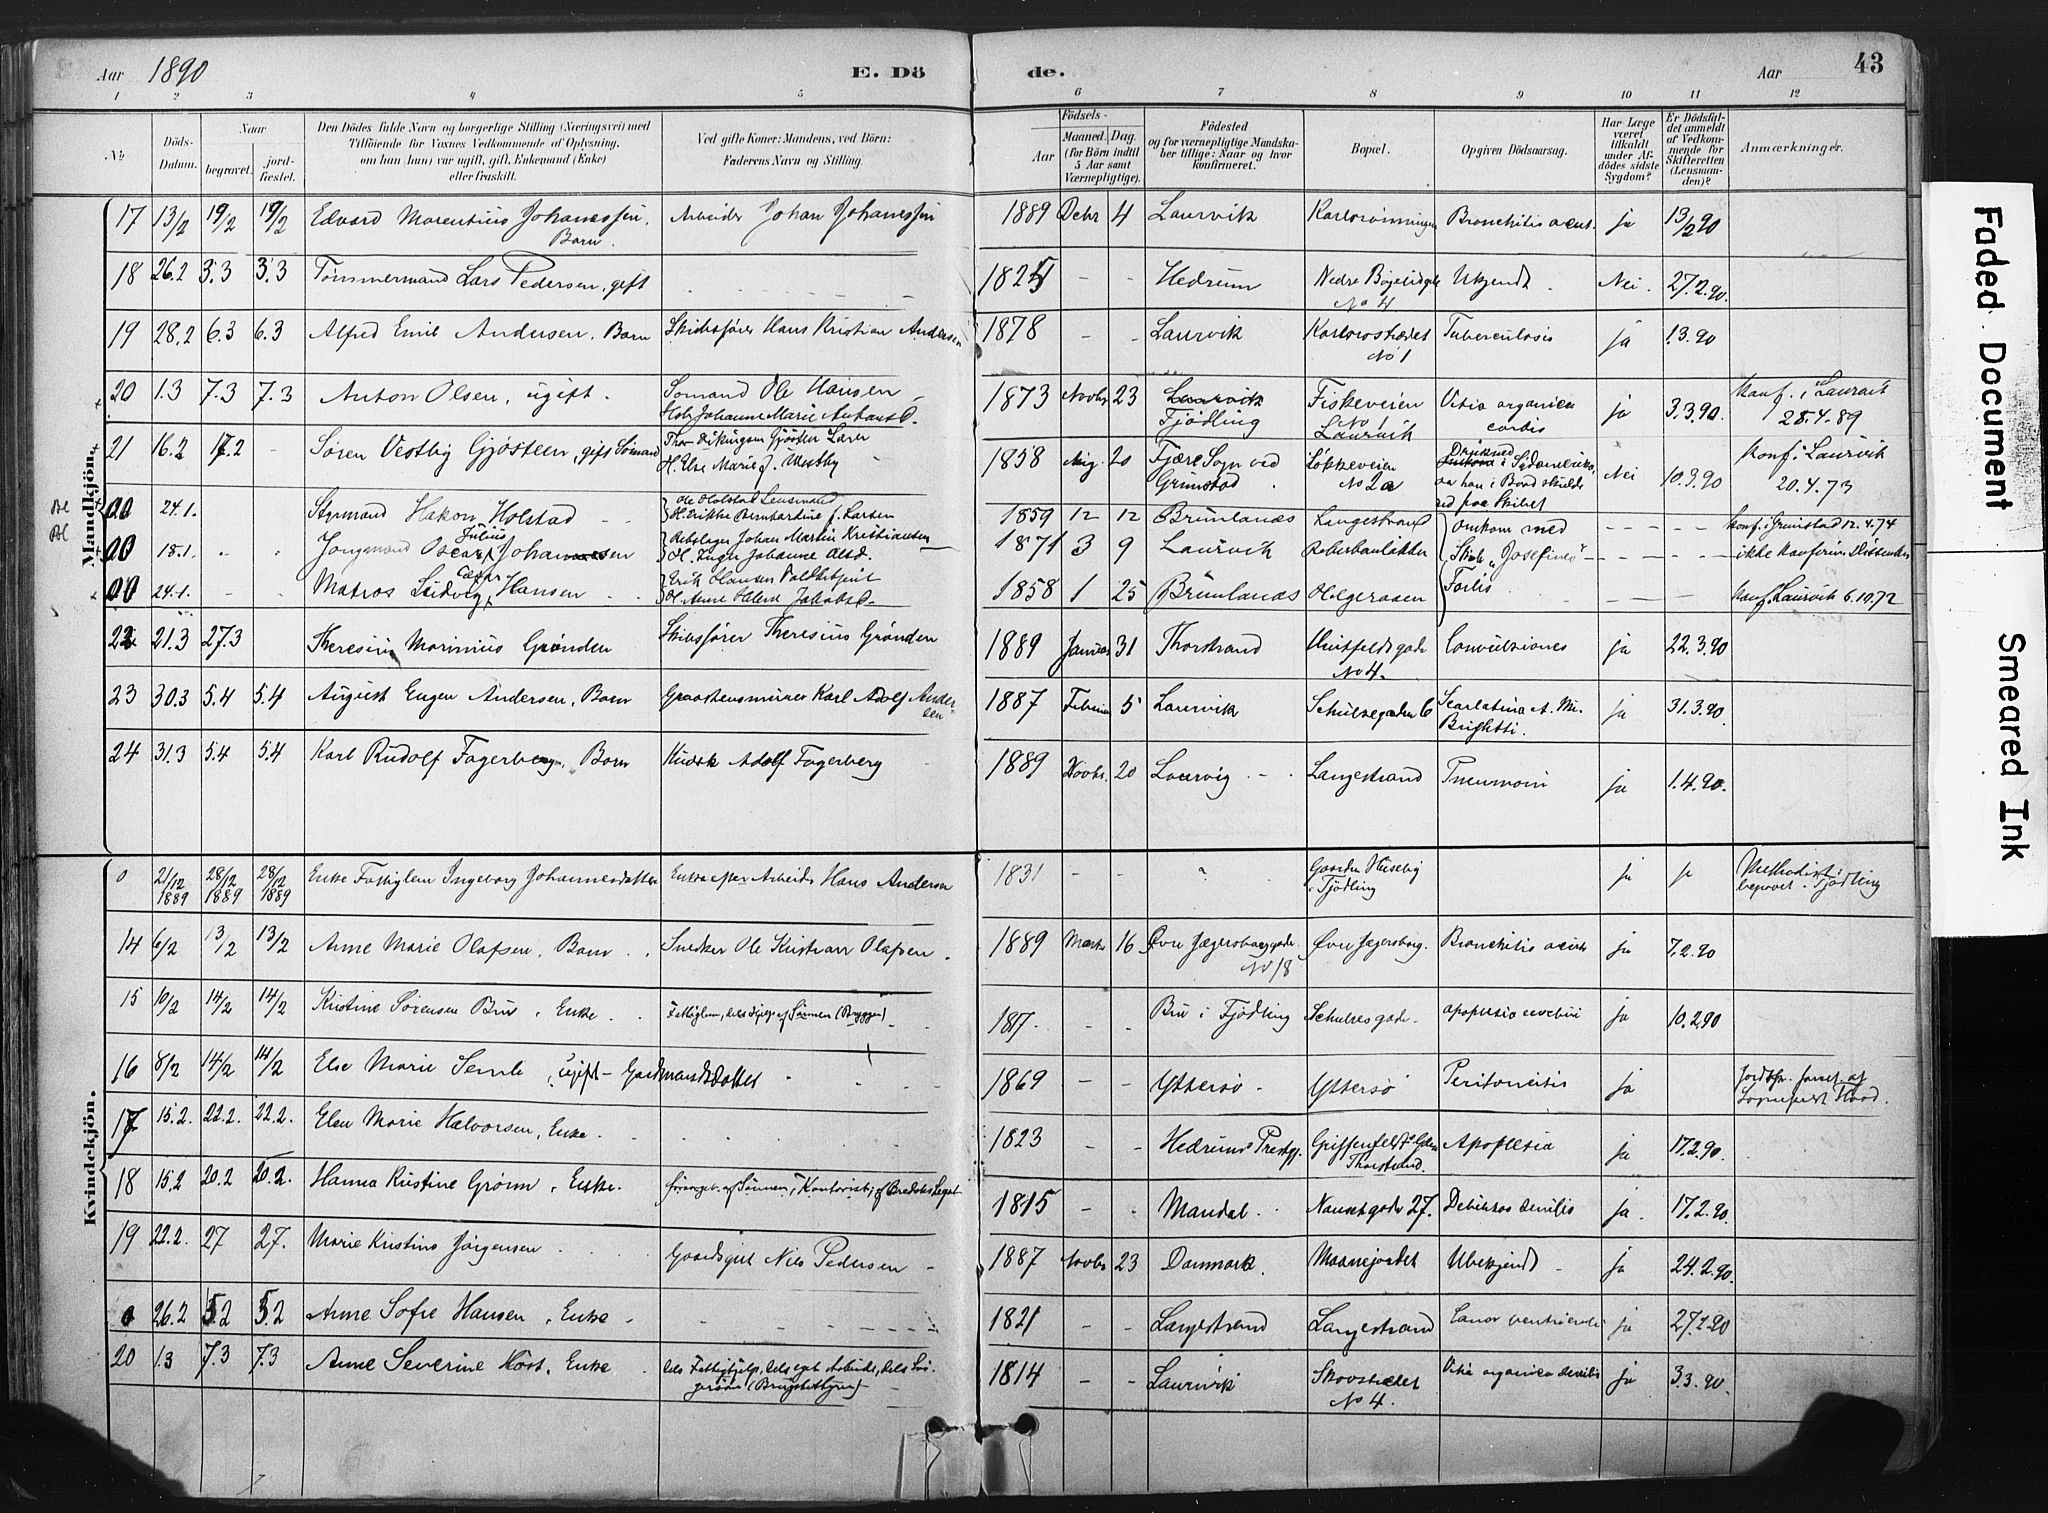 Aar 1890
E. Dö
de.
Aar
43
1 2 3 4 5 6 7 8 9 10 11 12
No
Döds-Datum.
Naar
begravet.
jord-fæstet.
Den Dödes fulde Navn og borgerlige Stilling (Næringsvei) med
Tilföiende for Voxnes Vedkommende af Oplysning,
om han (hun) var ugift, gift, Enkemand (Enke)
eller fraskilt.
Ved gifte Koner: Mandens, ved Börn:
Faderens Navn og Stilling.
Födsels-
Aar
Maaned. Dag.
(for Börn indtil 5 Aar samt Værnepligtige).
Födested
og for værnepligtige Mandska-
ber tillige: Naar og hvor
konfirmeret.
Bopæl.
Opgiven Dödsaarsag.
Har Læge været tilkaldt under Af-dödes sidste Sygdom?
Er Dödsfal-det anmeldt af Vedkom-mende for Skifteretten (Lensman-den)?
Anmærkninger.
Mandkjön.
17 13/2 19/2 19/2 Edvard Marentius Johannessen, Barn. Arbeider Johan Johannessen 1889 Debr 4 Laurvik Karlsrønningen Bronchitis acut. ja 13/2 90
18 26.2 3.3 3.3 Tømmermand Lars Pedersen, gift 1825 - - Hedrum Nedre Bøgelidgde No 4 Ukjendt. Nei. 27.2.90.
19 28.2 6.3 6.3 Alfred Emil Andersen, Barn Skibsfører Hans Kristian Andersen 1878 - - Laurvik No 1 Tuberculosis ja 1.3.90
20 1.3 7.3 7.3 Anton Olsen, ugift. Sømand Ole Hansen 1873 Novbr 23 Laurvik Tjødling Fiskeveien No 1 Laurvik Vitia organica cordis ja 3.3.90. Konf. i Laurvik 28.4.89
21 16.2 17.2 - Søren Vestby Gjøsteen, gift Sømand H. Else Marie f. Westby 1858 Aug. 20 Fjære Sogn ved Grimstad. Løkkeveien No 2a Nei 10.3.90 Konf. i Laurvik 20.4.73
00 24.1. Styrmand Hakon Holstad Ole Holstad Lensmand H. Erikke Bernhardine f. Larsen 1859 12 12 Brunlanæs Langestrand Omkom med Konf. i Grimstad 12.4.74
00 18.1. Jungmand Oscar Julius Johannesen Rebslager Johan Martin Kristiansen 1871 3 9 Laurvik Skib "Josefine" ikke konfirm.
00 24.1. Matros Ludvig Cæsar Hansen H. Anne Helene Jakobsd. 1858 1 25 Brunlanæs Helgeroaen Forlis Konf. Laurvik 6.10.72
22 21.3 27.3 Theresius Marinius Grønden Skibsfører Theresius Grønden 1889 Januar 31 Thorstrand Huitfeldsgade No 4. Convulsiones ja 22.3.90
23 30.3 5.4 5.4 August Eugen Andersen, Barn Graastensmurer Karl Adolf Andersen 1887 Februar 5 Laurvik Schulzegaden 6 Scarlatina Brightti. ja 31.3.90.
24 31.3 5.4 5.4 Karl Rudolf Fagerberg, Barn Kusk Adolf Fagerberg 1889 Novbr. 20 Laurvig Langestrand Pneumoni ja 1.4.90.
Kvindekjön.
0 21/12 1889 28/12 1889 28/12 1889 Enke Fattiglem Ingeborg Johannesdatter Enke efter Arbeider Hans Andersen 1831 - - Gaarden Huseby i Tjødling ja ja Methodist begravet i Tjødling
14 6/2 13/2 13/2 Anne Marie Olafsen, Barn. Snedker Ole Kristian Olafsen. 1889 Marts 16 Øvre Jægersborggade No 18 Øvre Jægersborg. Bronchitis acuta ja 7.2.90
15 10/2 14/2 14/2 Kristine Sørensen Bru, Enke. Fattiglem, dels Hjelp af Sønnen (Bryggen) 1817. - - Bru i Tjødling Schulzesgade. apoplexia cerebri ja 10.2.90
16 8/2 14/2 14/2 Else Marie Semb, ugift - Gaardmandsdatter 1869 - - Yttersø. Yttersø Peritonitis ja Jordfp. forret. af Sognepræst Flood.
17 15.2. 22.2. 22.2. Elen Marie Halvorsen, Enke. 1823 - - Hedrums Prestgj. Thorstrand. Apoplexia ja 17.2.90.
18 15.2 20.2 20.2. Hanna Kristine Grøm, Enke. forsørget af Sønnen, Kontorist, af Bredals Legat 1815 - - Mandal. Nansetgade 27. Debilitas senilis ja. 17.2.90.
19 22.2. 27 27. Marie Kristine Jørgensen Gaardsgut Nils Pedersen 1887 Novbr 23 Danmark. Maanejordet Ubekjendt ja 24.2.90.
0 26.2 5.2 5.2 Anne Sofie Hansen, Enke. 1821 - - Langestrand Langestrand Cancr ventriculi ja 27.2.90
20 1.3 7.3 7.3 Anne Severine Høst, Enke dels Fattighjelp, dels eget Arbeide, 1814 - - Laurvik No 4. Vitia organica senilis ja 3.3.90.
Faded Document Smeared Ink